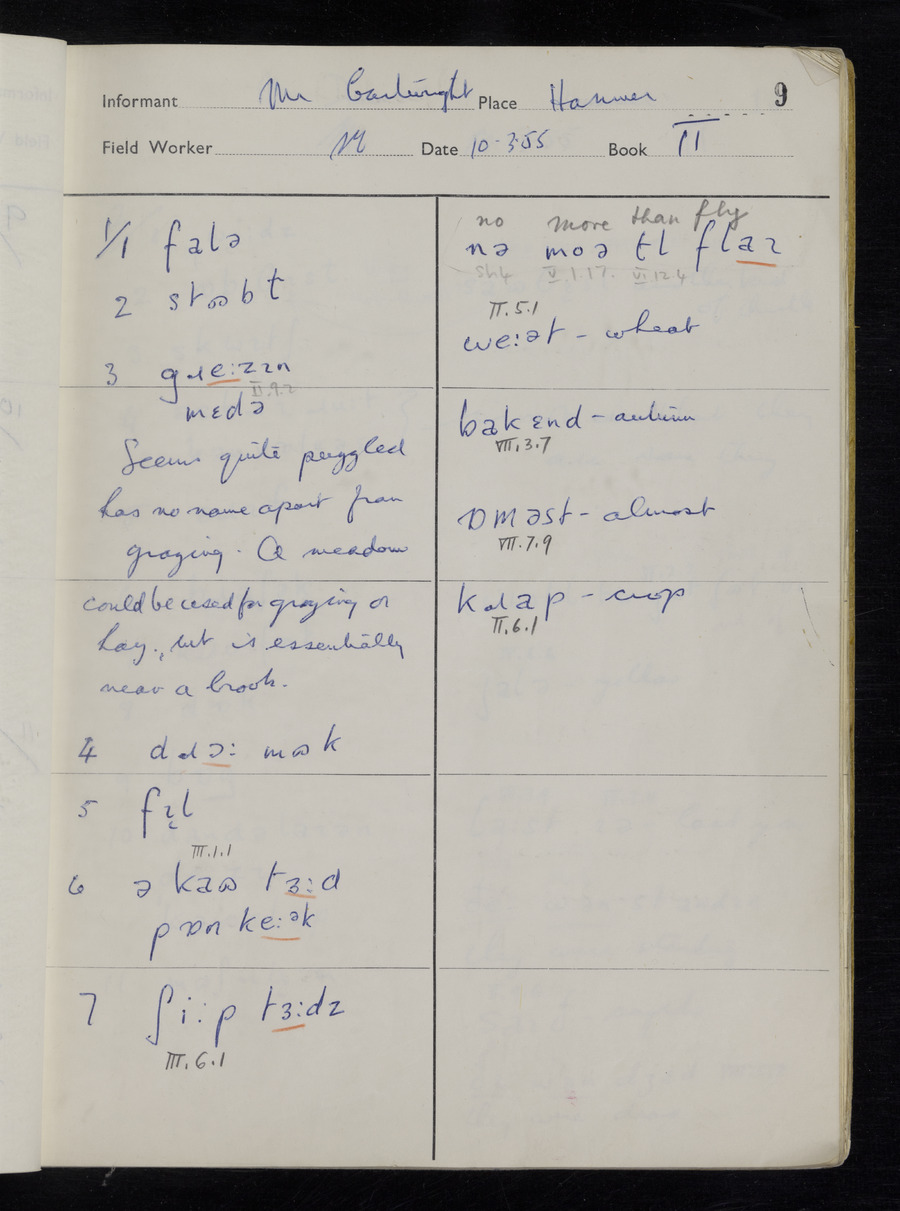 Informant Mr Cartwright Place Hanmer 9
Field Worker Date 10-3-55 Book II
1/1 falə
2 stʊbt
3 gɹe:zɪn
II.9.2
mɛdə
Seems quite puzzled
has no name apart from
grazing. A meadow
could be used for grazing or
hay, but is essentially
near a brook.
4 dɹɔ: mʊk
5 fɪl
III.1.1
6 ə kaʊ tɜ:d
ke:ək
7 ʃi:p tɜ:dz
III.6.1
no more than fly
nə moə tl flaɪ
Sh4 V.1.17. VI.12.4
II.5.1
we:ət - wheat
bak ɛnd - autumn
VII.3.7
ɒməst - almost
VII.7.9
kɹap - crop
II.6.1